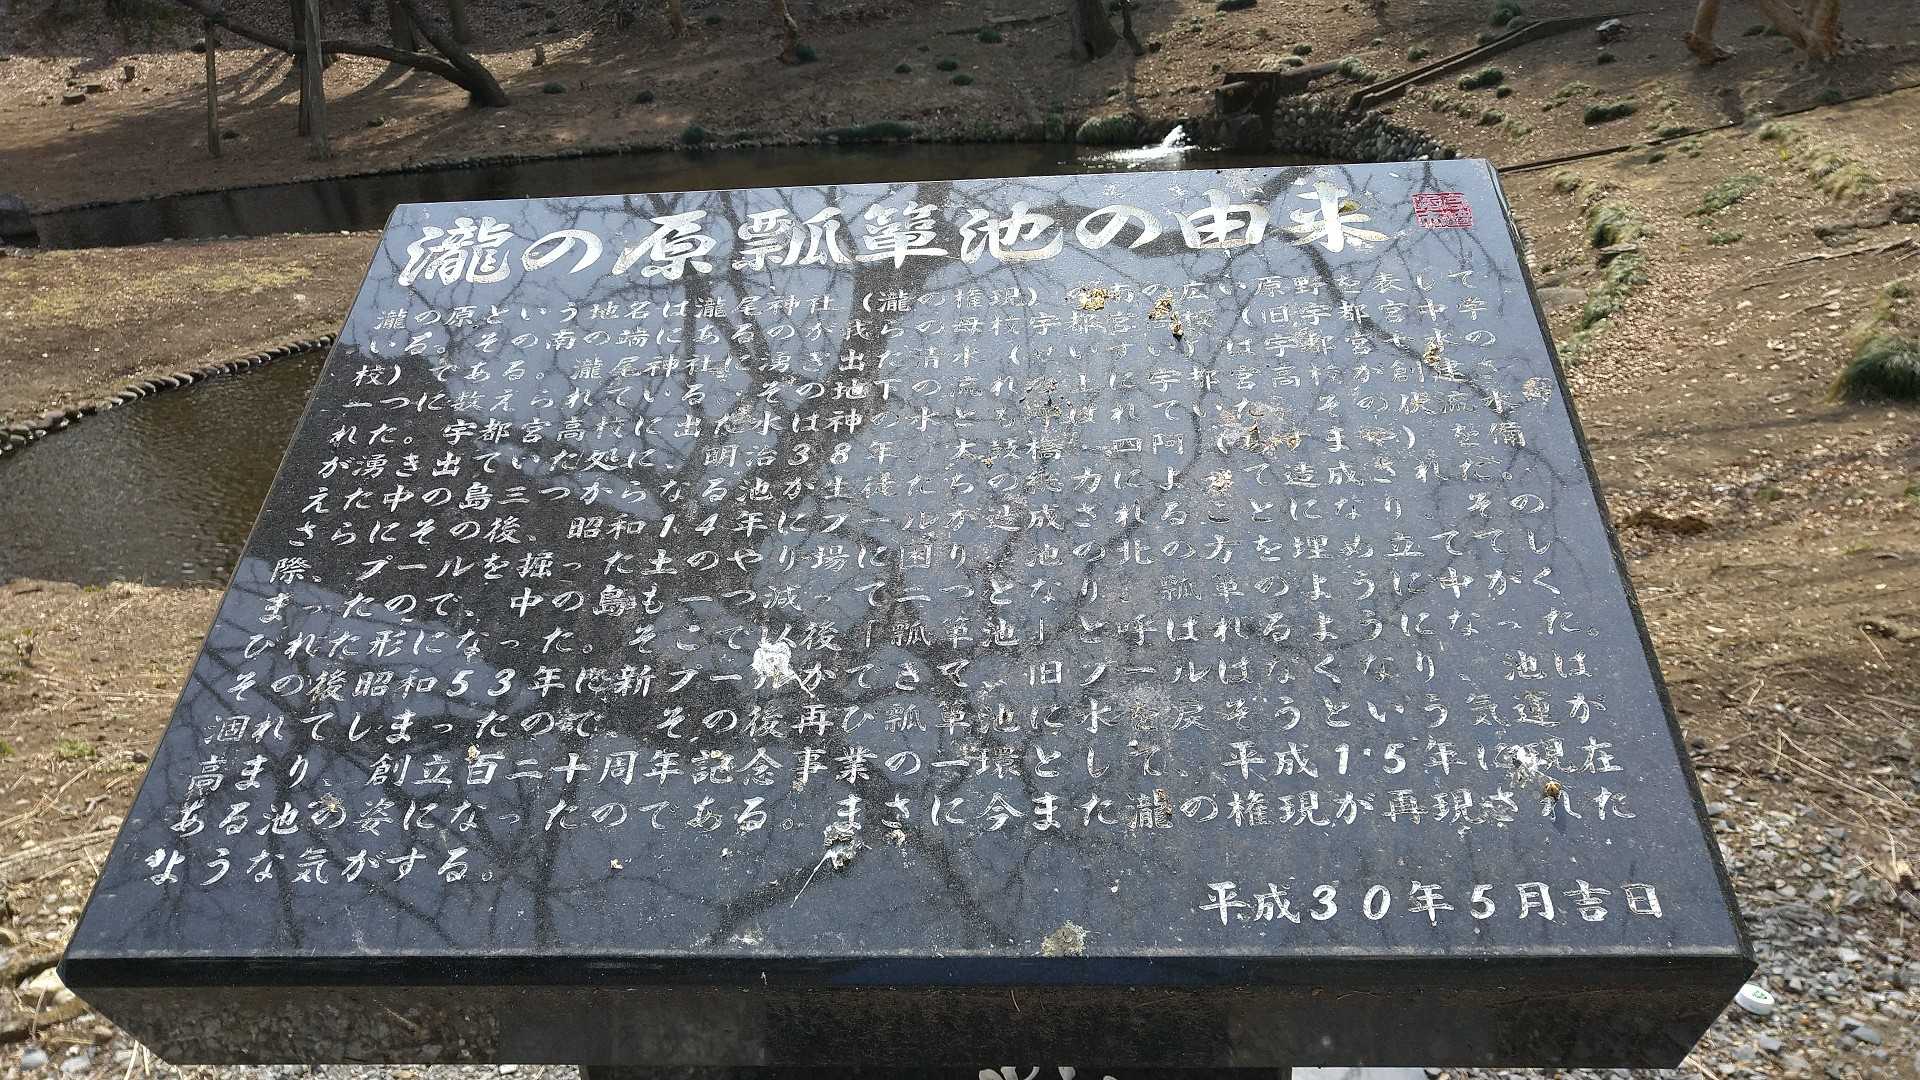 瀧の原瓢箪池の由来
瀧の原という地名は瀧尾神社（瀧の権現）の南の広い原野を表して
いる。その南の端にあるのが我らの母校宇都宮高校（旧宇都宮中学
校）である。瀧尾神社に湧き出た清水（せいすい）は宇都宮七水の
一つに数えられている。その地下の流れの上に宇都宮高校が創建さ
れた。宇都宮高校に出た水は神の水とも呼ばれていた。その伏流水
が湧き出ていた処に、明治38年、太鼓橋、四阿（あずまや）を備
えた中の島三つからなる池が生徒たちの総力によって造成された。
さらにその後、昭和14年にプールが造成されることになり、その
際、プールを掘った土のやり場に困り、池の北の方を埋め立ててし
まったので、中の島も一つ減って二つとなり、瓢箪のように中がく
びれた形になった。そこで以後「瓢箪池」と呼ばれるようになった。
その後昭和53年に新プールができて、旧プールはなくなり、池は
涸れてしまったので、その後再び瓢箪池に水を戻そうという気運が
高まり、創立百二十周年記念事業の一環として、平成15年に現在
ある池の姿になったのである。まさに今また瀧の権現が再現された
ような気がする。
平成30年5月吉日